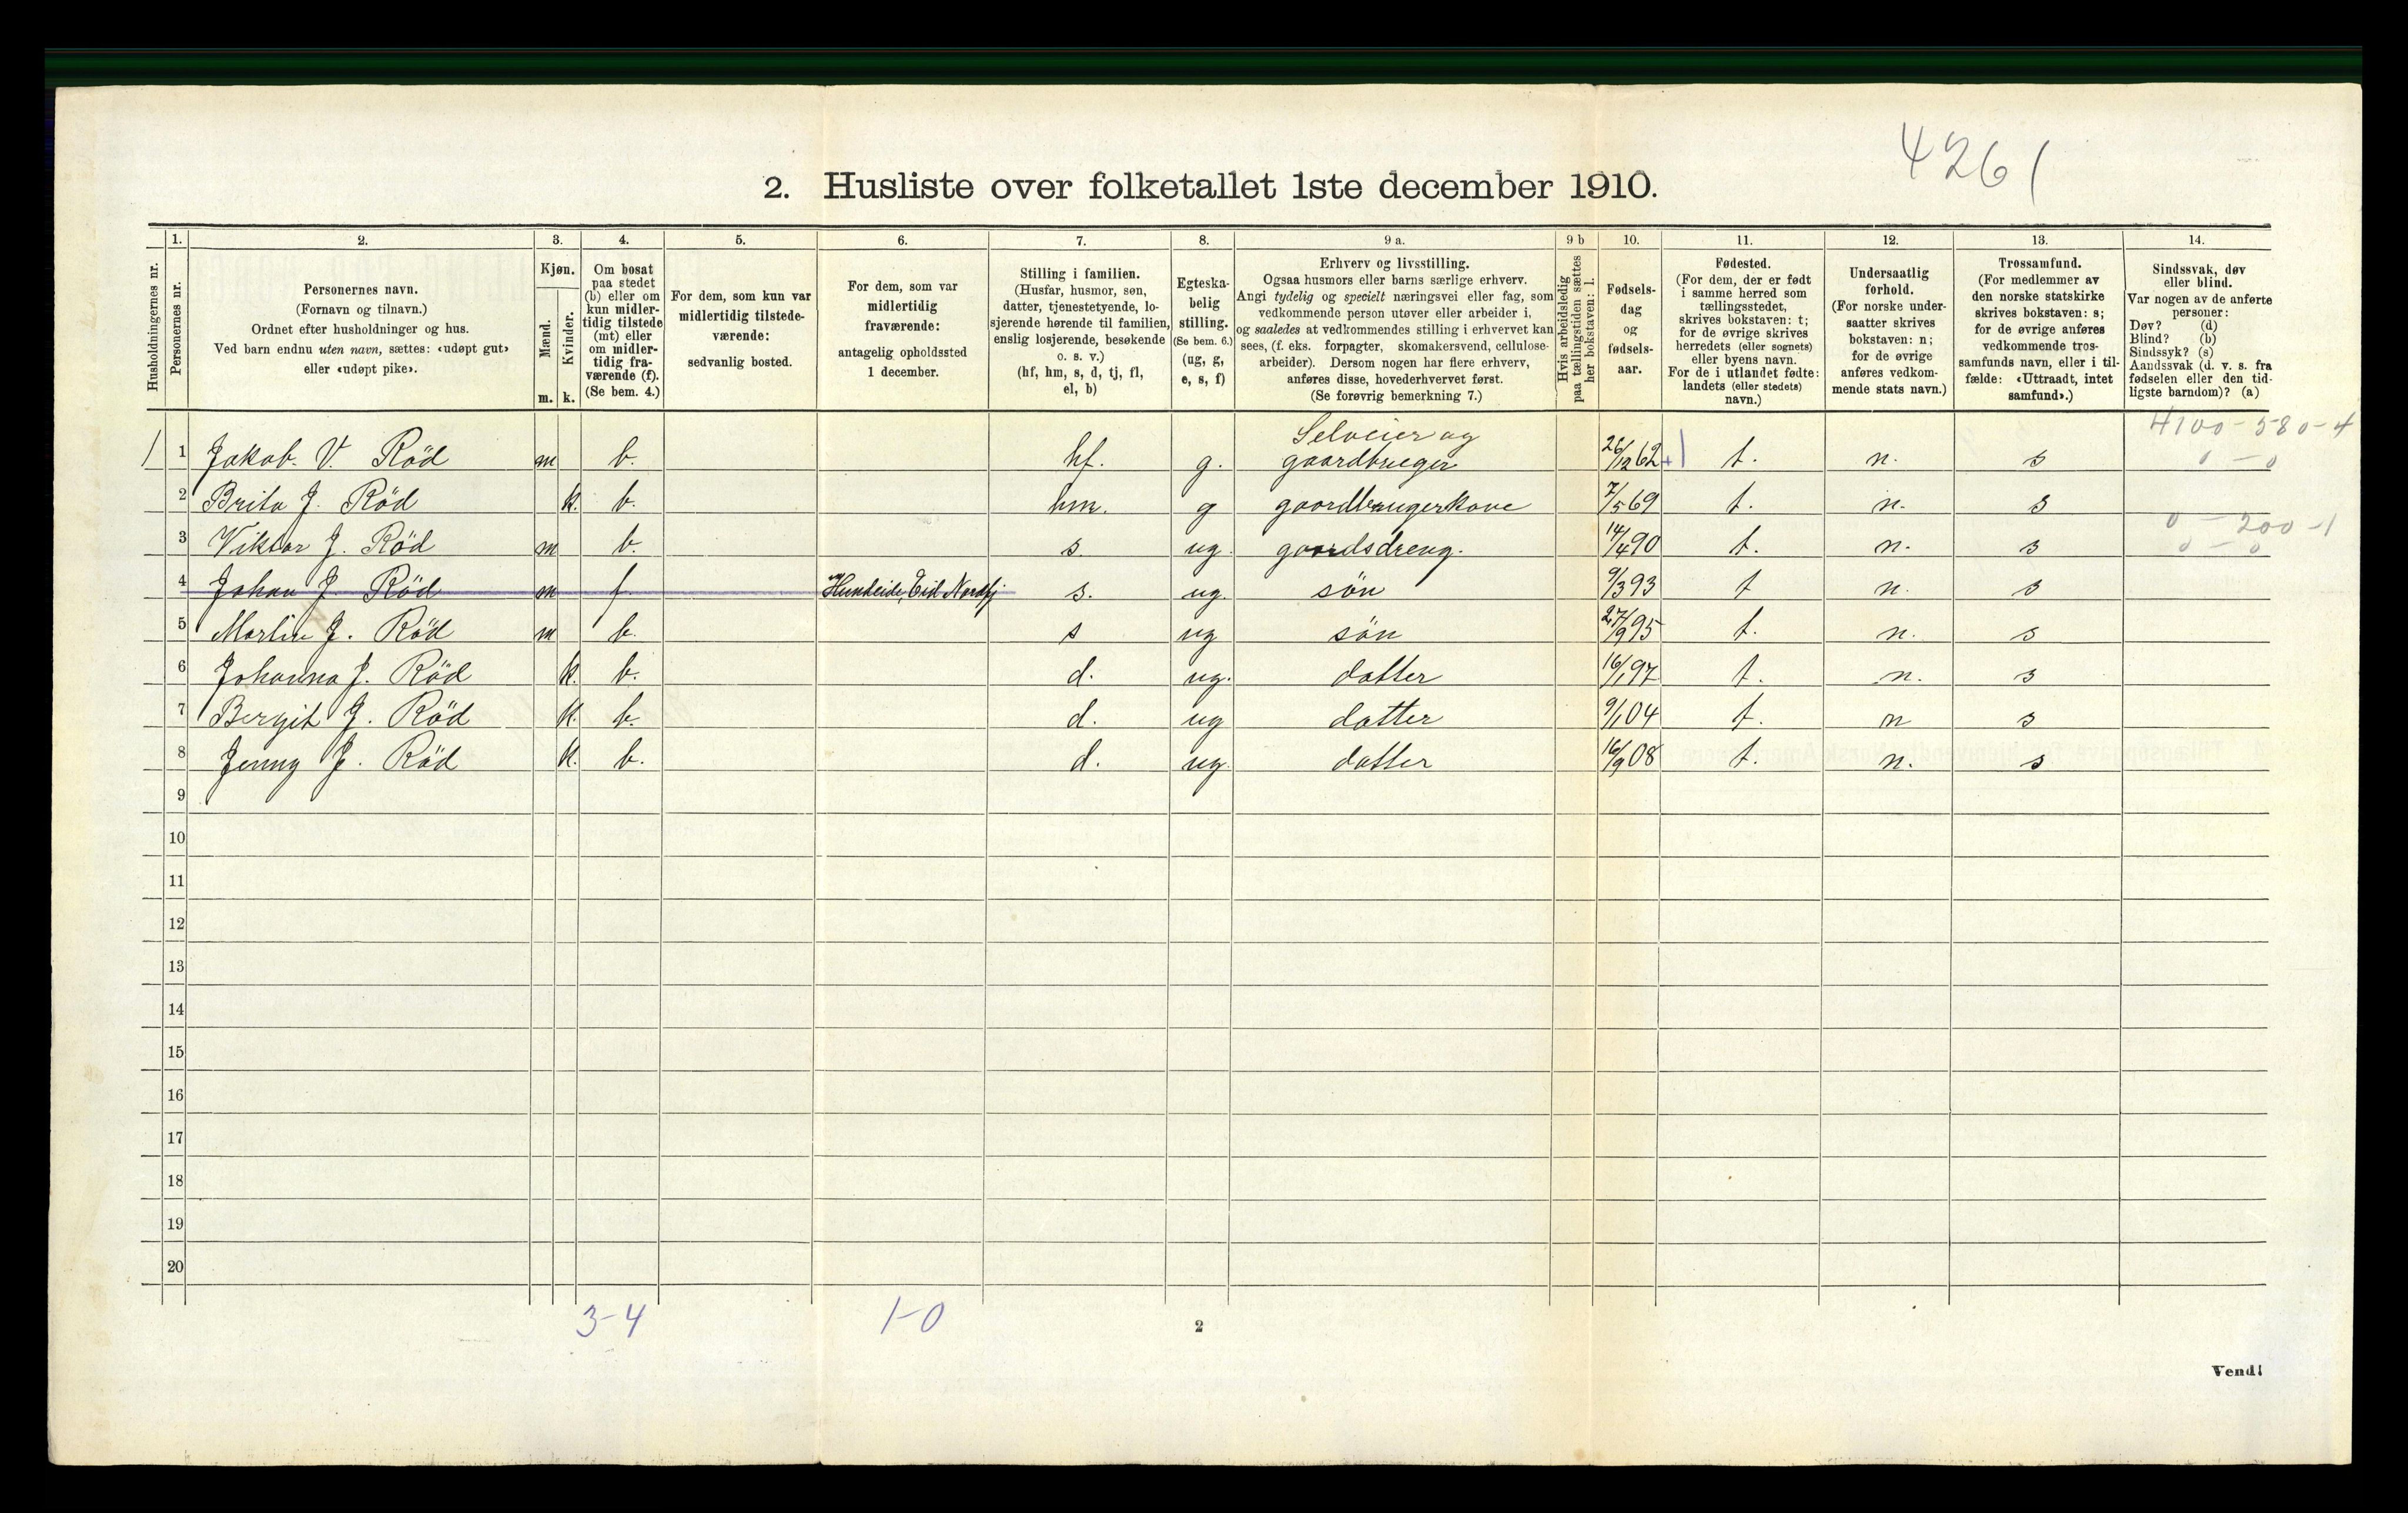 4261
2. Husliste over folketallet 1ste december 1910.
Husholdningernes nr.
1.
Personernes nr.
2.
Personernes navn.
(Fornavn og tilnavn.)
Ordnet efter husholdninger og hus.
Ved barn endnu uten navn, sættes: «udøpt gut»
eller «udøpt pike».
3.
Kjøn.
Mænd.
Kvinder.
m. k.
4.
Om bosat
paa stedet
(b) eller om
kun midler-
tidig tilstede
(mt) eller
om midler-
tidig fra-
værende (f).
(Se bem. 4.)
5.
For dem, som kun var
midlertidig tilstede-
værende:
sedvanlig bosted.
6.
For dem, som var
midlertidig
fraværende:
antagelig opholdssted
1 december.
7.
Stilling i familien.
(Husfar, husmor, søn,
datter, tjenestetyende, lo-
sjerende hørende til familien,
enslig losjerende, besøkende
o. s. v.)
(hf, hm, s, d, tj, fl,
el, b)
8.
Egteska-
belig
stilling.
(Se bem. 6.)
(ug, g,
e, s, f)
9 a.
Erhverv og livsstilling.
Ogsaa husmors eller barns særlige erhverv.
Angi tydelig og specielt næringsvei eller fag, som
vedkommende person utøver eller arbeider i,
og saaledes at vedkommendes stilling i erhvervet kan
sees, (f. eks. forpagter, skomakersvend, cellulose-
arbeider). Dersom nogen har flere erhverv,
anføres disse, hovederhvervet først.
(Se forøvrig bemerkning 7.)
9 b
Hvis arbeidsledig
paa tællingstiden sættes
her bokstaven: l.
10.
Fødsels-
dag
og
fødsels-
aar.
11.
Fødested.
(For dem, der er født
i samme herred som
tællingsstedet,
skrives bokstaven: t;
for de øvrige skrives
herredets (eller sognets)
eller byens navn.
For de i utlandet fødte:
landets (eller stedets)
navn.)
12.
Undersaatlig
forhold.
(For norske under-
saatter skrives
bokstaven: n;
for de øvrige
anføres vedkom-
mende stats navn.)
13.
Trossamfund.
(For medlemmer av
den norske statskirke
skrives bokstaven: s;
for de øvrige anføres
vedkommende tros-
samfunds navn, eller i til-
fælde: «Uttraadt, intet
samfund».)
14.
Sindssvak, døv
eller blind.
Var nogen av de anførte
personer:
Døv? (d)
Blind? (b)
Sindssyk? (s)
Aandssvak (d. v. s. fra
fødselen eller den tid-
ligste barndom)? (a)
4100-580-4
1 1 Jakob V. Rød m b. hf. g. Selveier og gaardbruger 26/12 62 +1 t. n. s 0-0
2 Brita J. Rød k. b. hm. g gaardbrugerkone 7/5 69 t. n. s
0-200-1
3 Viktor J. Rød m b. s. ug. gaardsdreng. 14/4 90 t. n. s 0-0
4 Johan J. Rød m f. Eid Nordfj s. ug. søn 9/3 93 t n. s
5 Martin J. Rød m b. s ug søn 27/9 95 t. n. s
6 Johanna J. Rød k. b. d. ug. datter 16/1 97 t. n. s
7 Bergit J. Rød k. b. d. ug datter 9/1 04 t. n s
8 Jenny J. Rød k. b. d. ug. datter 16/9 08 t. n. s
9
10
11
12
13
14
15
16
17
18
19
20
3-4 1-0
2
Vend!